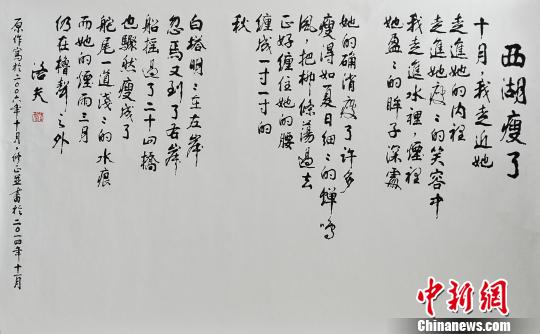 西湖瘦了
十月，我走近她
走進她的内裡
走進她瘦々的笑容中
我走進水裡煙裡
她盈々的眸子深處
她的确消瘦了許多
瘦得如夏日細々的蟬鳴
風，把柳條蕩過去
正好纏住她的腰
纏成一寸一寸的
秋
白塔明々在左岸
忽焉又到了右岸
船搖過了二十四橋
也驟然瘦成了
舵尾一道淺々的水痕
而她的煙雨三月
仍在櫓聲之外
洛夫
原作寫於二〇〇六年十月，修正並書於二〇一四年十一月
中新網
www.chinanews.com